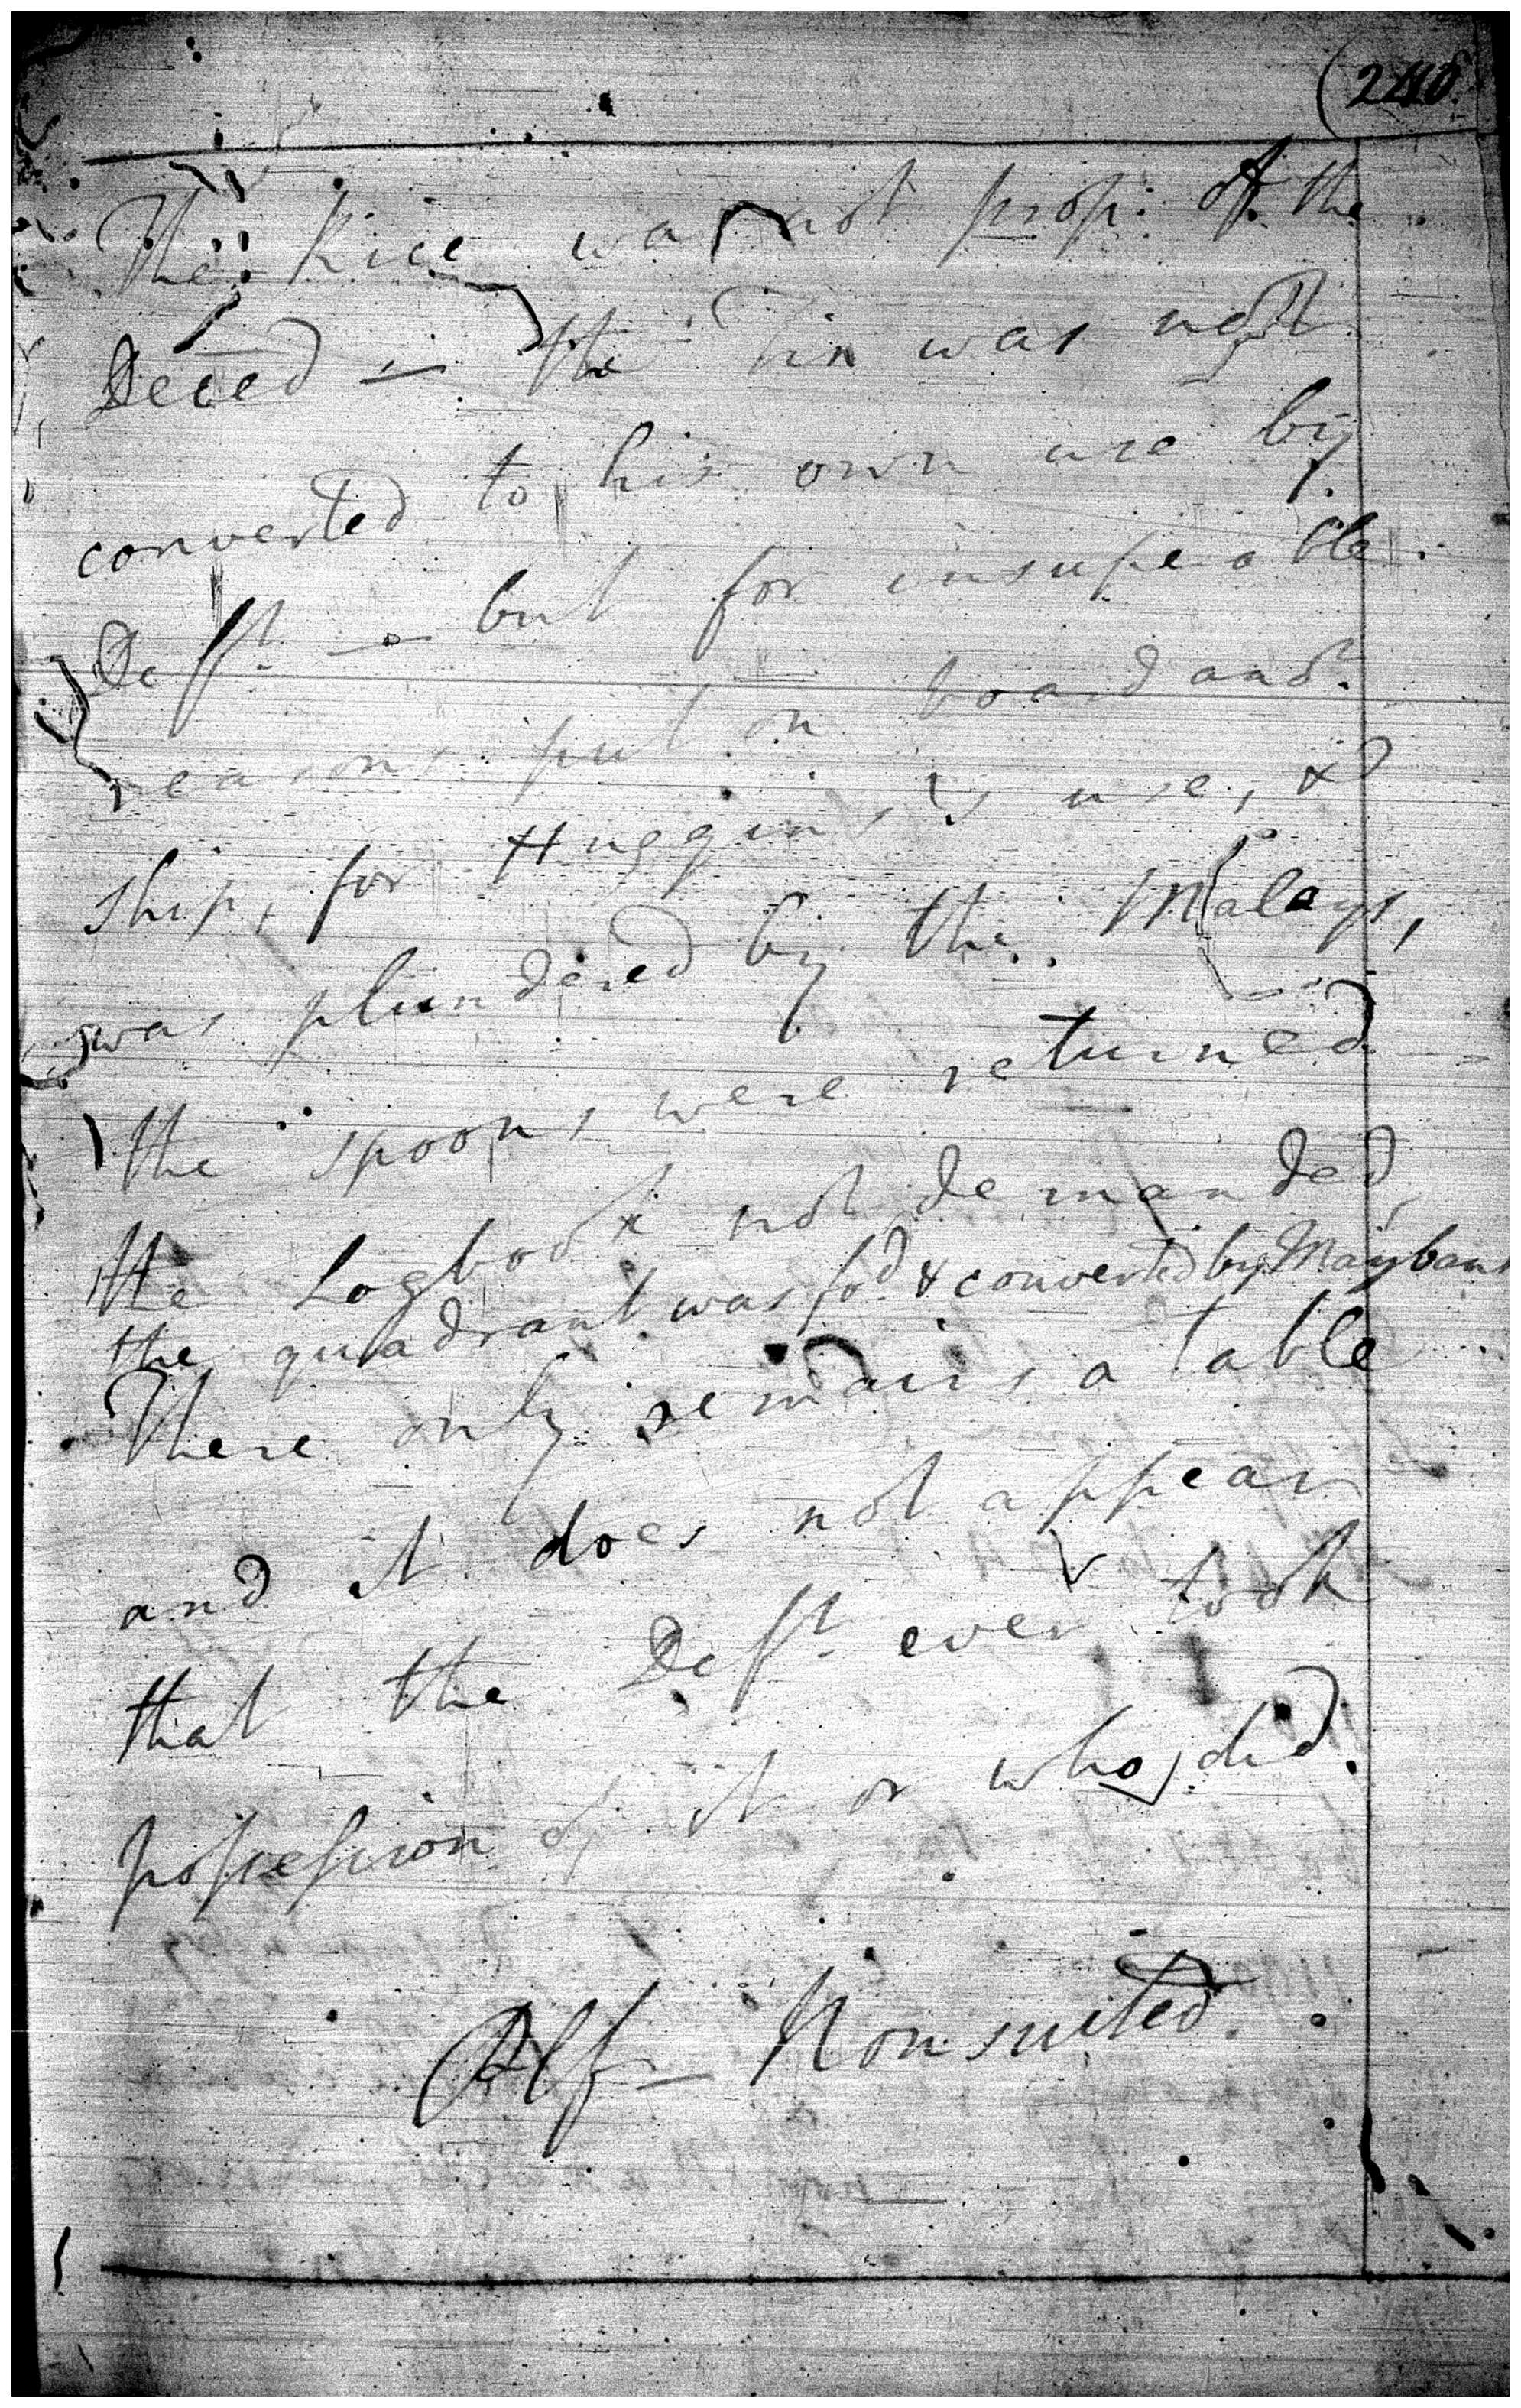 (240.
The Rice was not prop. of the
Deced — the Tin was not
converted to his own use by
Defft — but for insuperable
reasons put on board and.
ship, for Huggins's use, &
was plundered by the Malays,
the spoons were returned —
the Logbook not demanded,
the quadrant was so.d & converted by Maybans
There only remains a table
and it does not appear
that the Defft ever took
possession of it or who did.
Plf — Nonsuited.